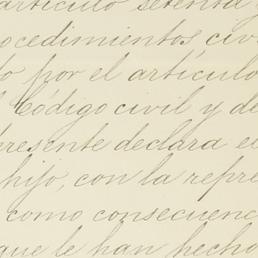 artículo setenta y
ocedimientos civ
o por el artículo
Código civil y de
presente declara e
hijo, con la repre
como consecuenc
que le han hecho